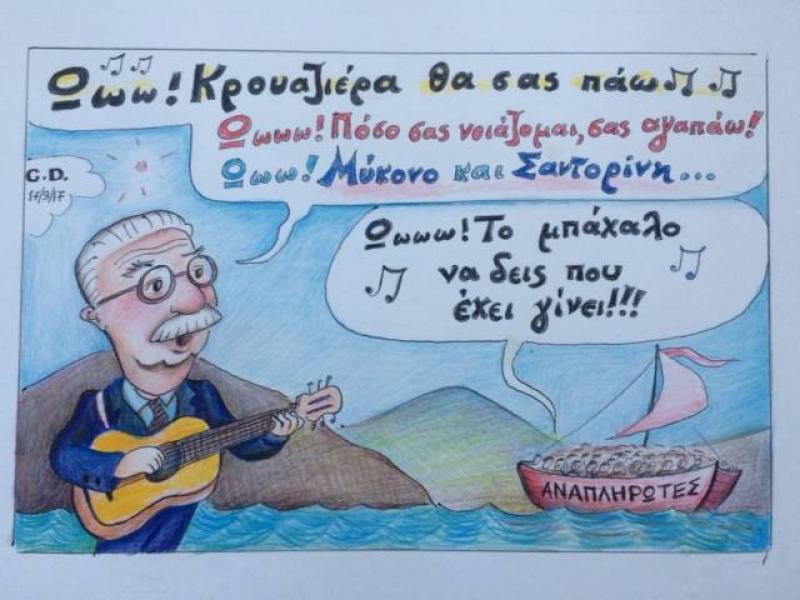 Ωωω! Κρουαζιέρα θα σας πάω
Ωωωω! Πόσο σας νοιάζομαι, σας αγαπάω!
Ωωω! Μύκονο και Σαντορίνη...
C.D.
17/9/17
Ωωωω! Το μπάχαλο
να δεις που
έχει γίνει!!!
ΑΝΑΠΛΗΡΩΤΕΣ